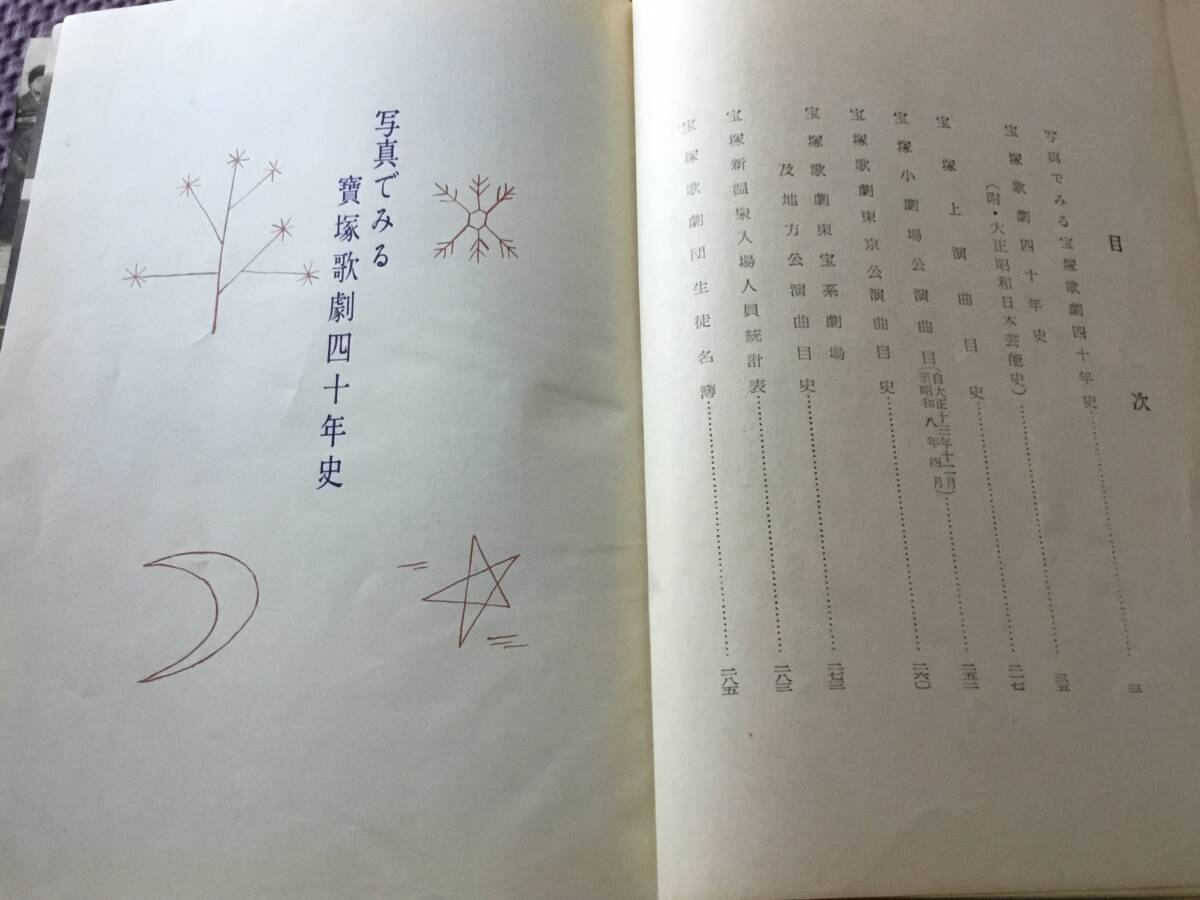 目次
写真でみる宝塚歌劇四十年史……………………三
宝塚歌劇四十年史
(附・大正昭和日本芸能史)……………………三五
宝塚上演曲目史……………………二一七
宝塚小劇場公演曲目(自大正十三年十二月
至昭和八年四月)……………………二五二
宝塚歌劇東京公演曲目史……………………二六〇
宝塚歌劇東宝系劇場
及地方公演曲目史……………………二七三
宝塚新温泉入場人員統計表……………………二八三
宝塚歌劇団生徒名簿……………………二八五
写真でみる
寶塚歌劇四十年史